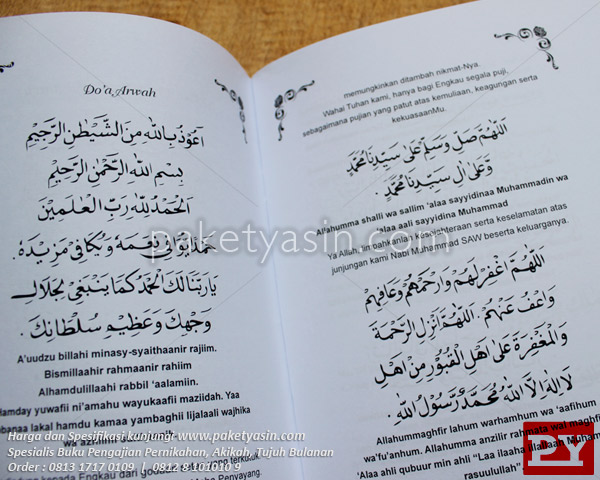 Do'a Arwah
اَعُوْذُ بِاللهِ مِنَ الشَّيْطٰنِ الرَّجِيْمِ
بِسْمِ اللهِ الرَّحْمٰنِ الرَّحِيْمِ
اَلْحَمْدُ لِلّٰهِ رَبِّ الْعٰلَمِيْنَ
حَمْدًا يُوَافِيْ نِعَمَهُ وَيُكَافِيْ مَزِيْدَهُ .
يَارَبَّنَا لَكَ الْحَمْدُ كَمَا يَنْبَغِيْ لِجَلَالِ
وَجْهِكَ وَعَظِيْمِ سُلْطَانِكَ .
A'uudzu billahi minasy-syaithaanir rajiim.
Bismillaahir rahmaanir rahiim
Alhamdulillaahi rabbil 'aalamiin.
Hamday yuwafii ni'amahu wayukaafii maziidah. Yaa
banaa lakal hamdu kamaa yambaghii lijalaali wajhika
wa
memungkinkan ditambah nikmat-Nya.
Wahai Tuhan kami, hanya bagi Engkau segala puji,
sebagaimana pujian yang patut atas kemuliaan, keagungan serta
kekuasaanMu.
اَللّٰهُمَّ صَلِّ وَسَلِّمْ عَلٰى سَيِّدِنَا مُحَمَّدٍ
وَعَلٰى اٰلِ سَيِّدِنَا مُحَمَّدٍ .
Allahumma shalli wa sallim 'alaa sayyidinaa Muhammadin wa
'alaa aali sayyidinaa Muhammad
Ya Allah, limpahkanlah kesejahteraan serta keselamatan atas
junjungan kami Nabi Muhammad SAW beserta keluarganya.
اَللّٰهُمَّ اغْفِرْ لَهُمْ وَارْحَمْهُمْ وَعَافِهِمْ
وَاعْفُ عَنْهُمْ . اَللّٰهُمَّ اَنْزِلِ الرَّحْمَةَ
وَالْمَغْفِرَةَ عَلٰى اَهْلِ الْقُبُوْرِ مِنْ اَهْلِ
لَا اِلٰهَ اِلَّا اللهُ مُحَمَّدٌ رَّسُوْلُ اللهِ .
Allahummaghfir lahum warhamhum wa 'aafihum
wa'fu'anhum. Allahumma anzilir rahmata wal maghfi
'Alaa ahli qubuur min ahli "Laa ilaaha illallaah Muham
rasuulullah"
paketyasin.com
Harga dan Spesifikasi kunjungi www.paketyasin.com
Spesialis Buku Pengajian Pernikahan, Akikah, Tujuh Bulanan
Order : 0813 1717 0109 | 0812 8 101010 9
PY